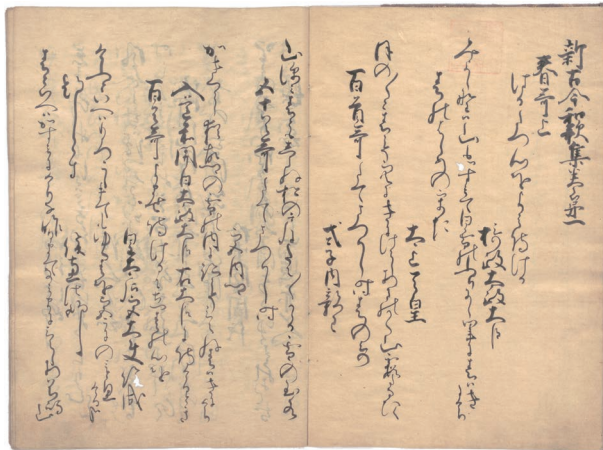 新古今和歌集巻第一
春哥上
はるたつ心をよみ侍ける
摂政太政大臣
みよし野は山もかすみて白雪のふりにし里に春はきにけり
春のはしめのうた
太上天皇
ほの／＼と春こそ空にきにけらしあまのかく山霞たなひく
百首哥たてまつりし時春のうた
式子内親王
山深み春ともしらぬ松の戸にたえ／＼かゝる雪の玉水
五十首哥たてまつりし時
宮内卿
かきくらし猶故郷の雪の内に跡こそみえね春はきにけり
入道前関白太政大臣右大臣に侍ける時
百首哥よませ侍けるに立春の心を
皇太后宮大夫俊成
けふといへはもろこしまてもゆく春を都にのみと思ける哉
題しらす
俊恵法師
春といへはかすみにけりな昨日まて浪まにみえしあはち嶋山